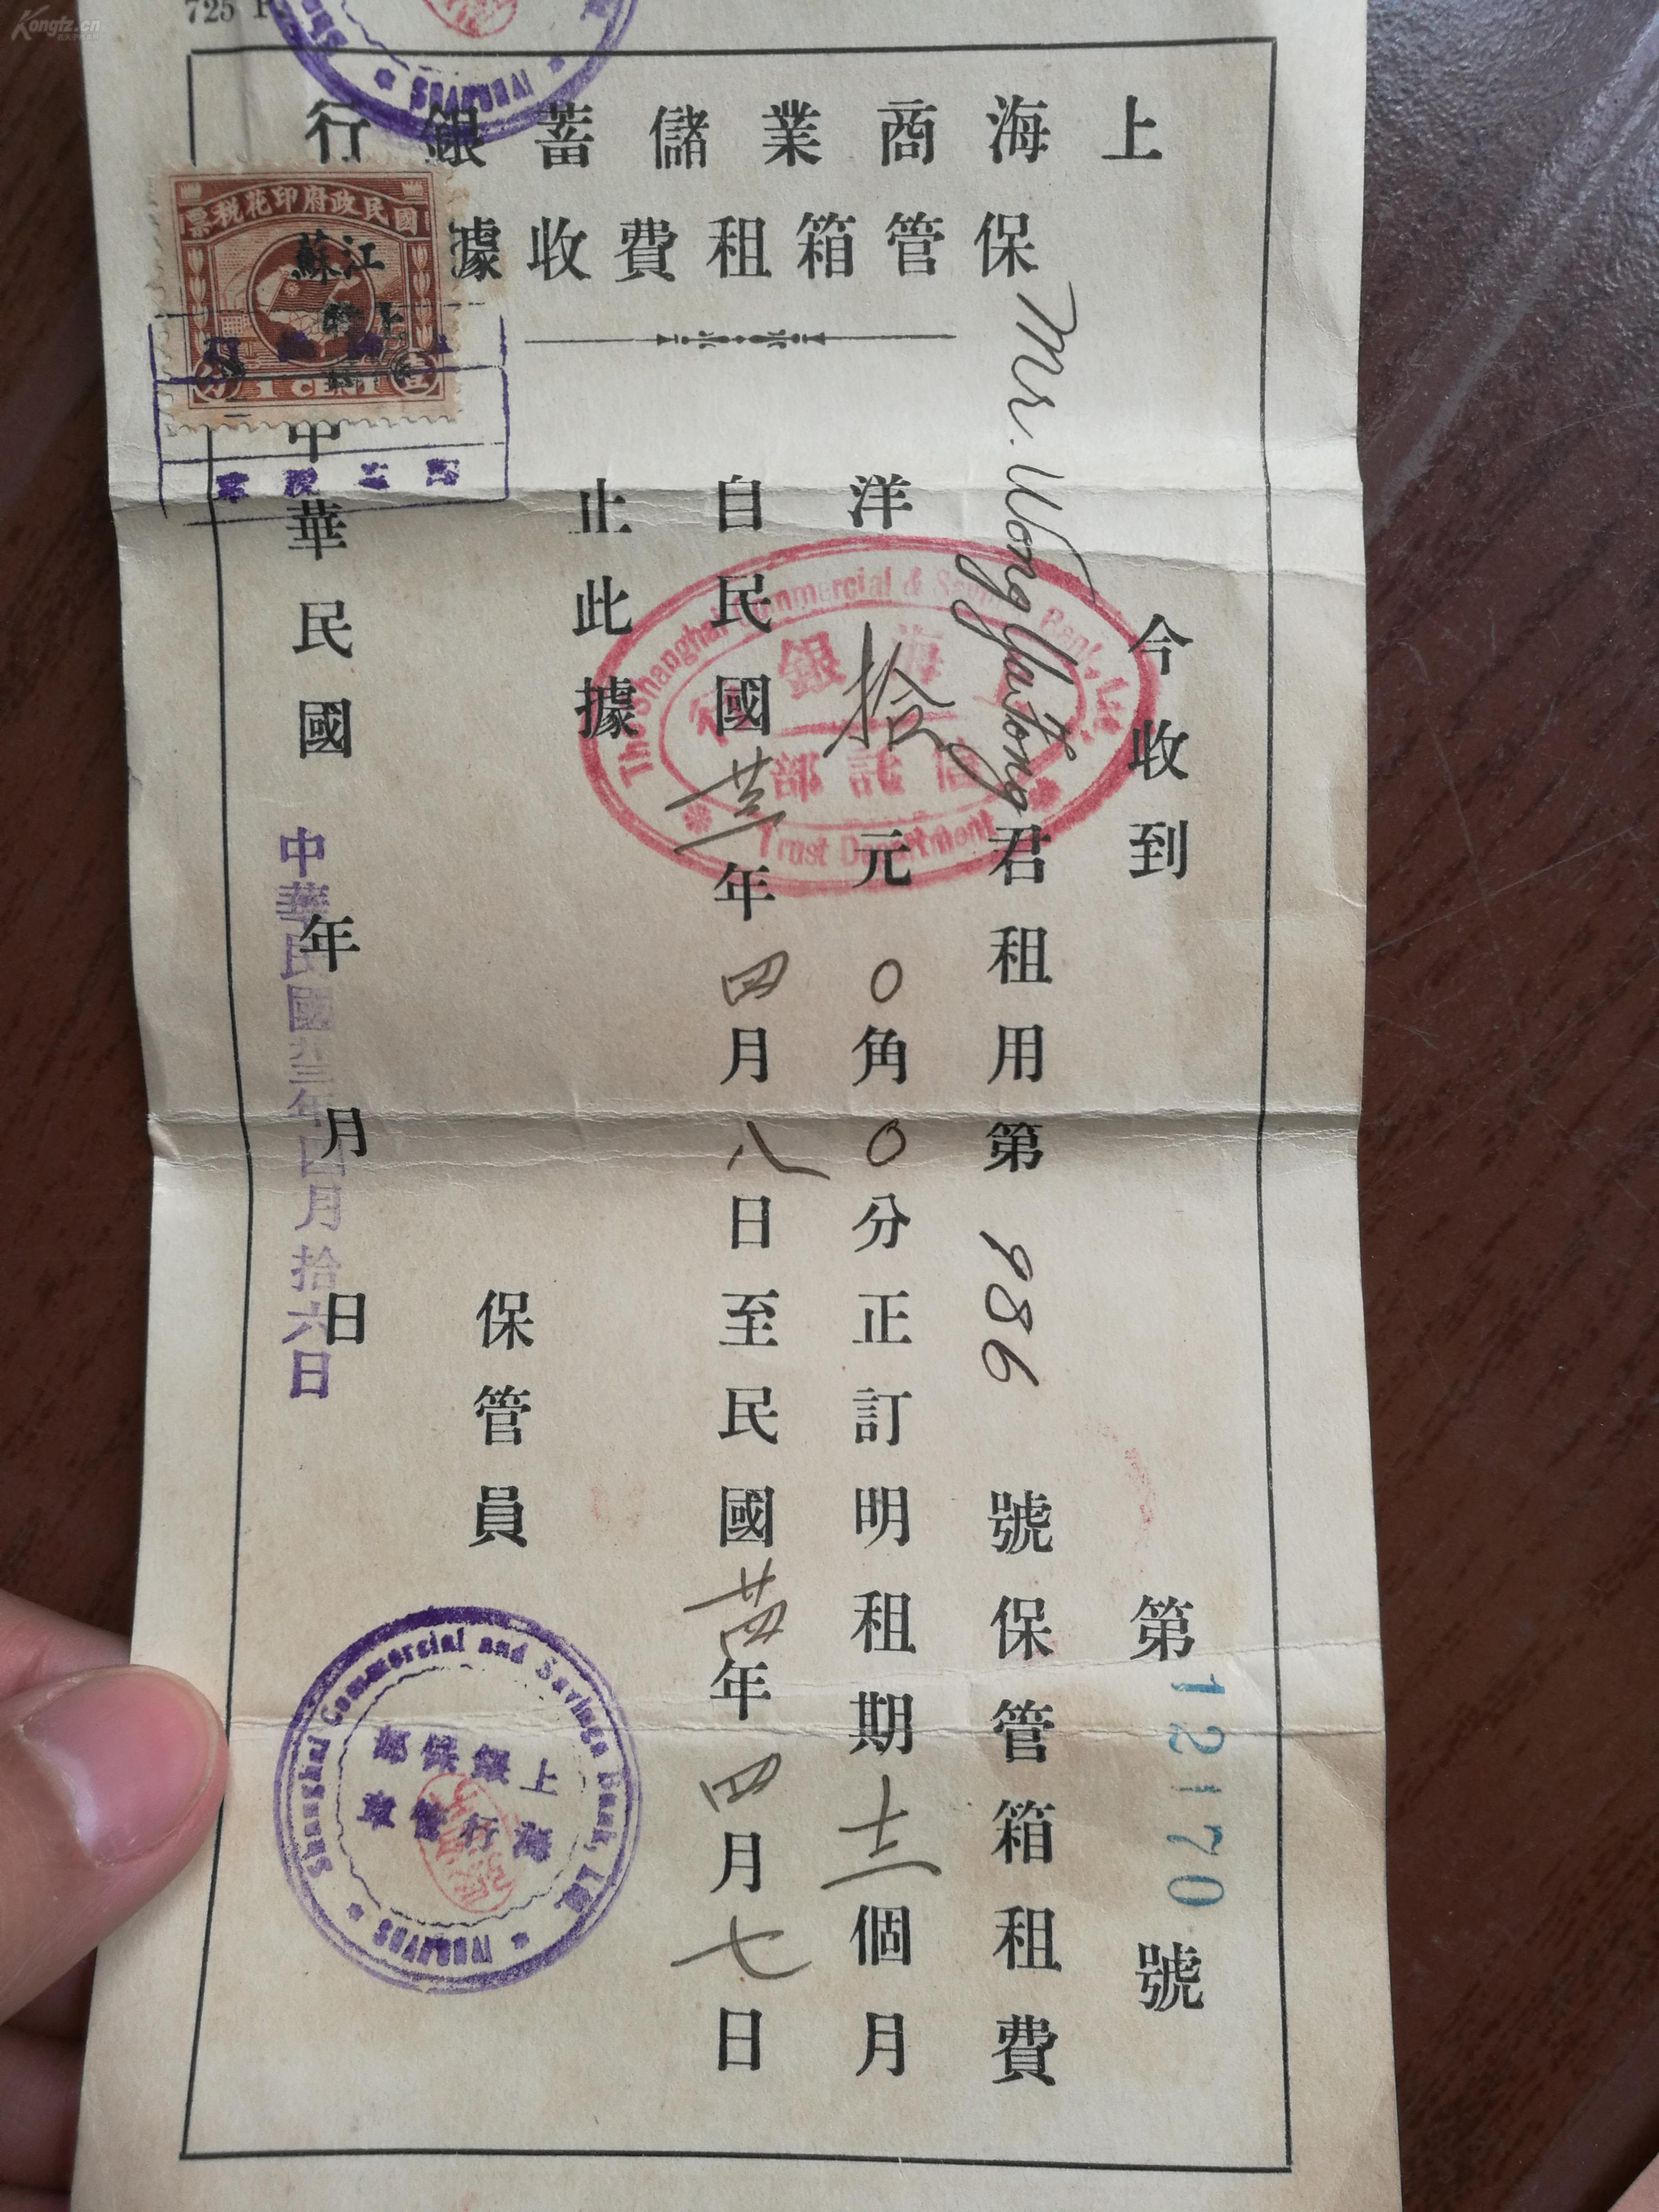 Kongfz.cn
725
SHANGHAI
上海商業儲蓄銀行
保管箱租費收據
國民政府印花稅票
江蘇
上海
1 CENT
壹分
今收到
第12170號
Mr. Wong Yu Tong君租用第986號保管箱租費
洋拾元0角0分正訂明租期十二個月
自民國廿三年四月八日至民國廿四年四月七日
止此據
The Shanghai Commercial & Savings Bank, Ltd.
海銀行
信託部
Trust Department
保管員
中華民國年月日
中華民國廿三年四月拾六日
Shanghai Commercial and Savings Bank, Ltd.
上海銀行保管部
SHANGHAI